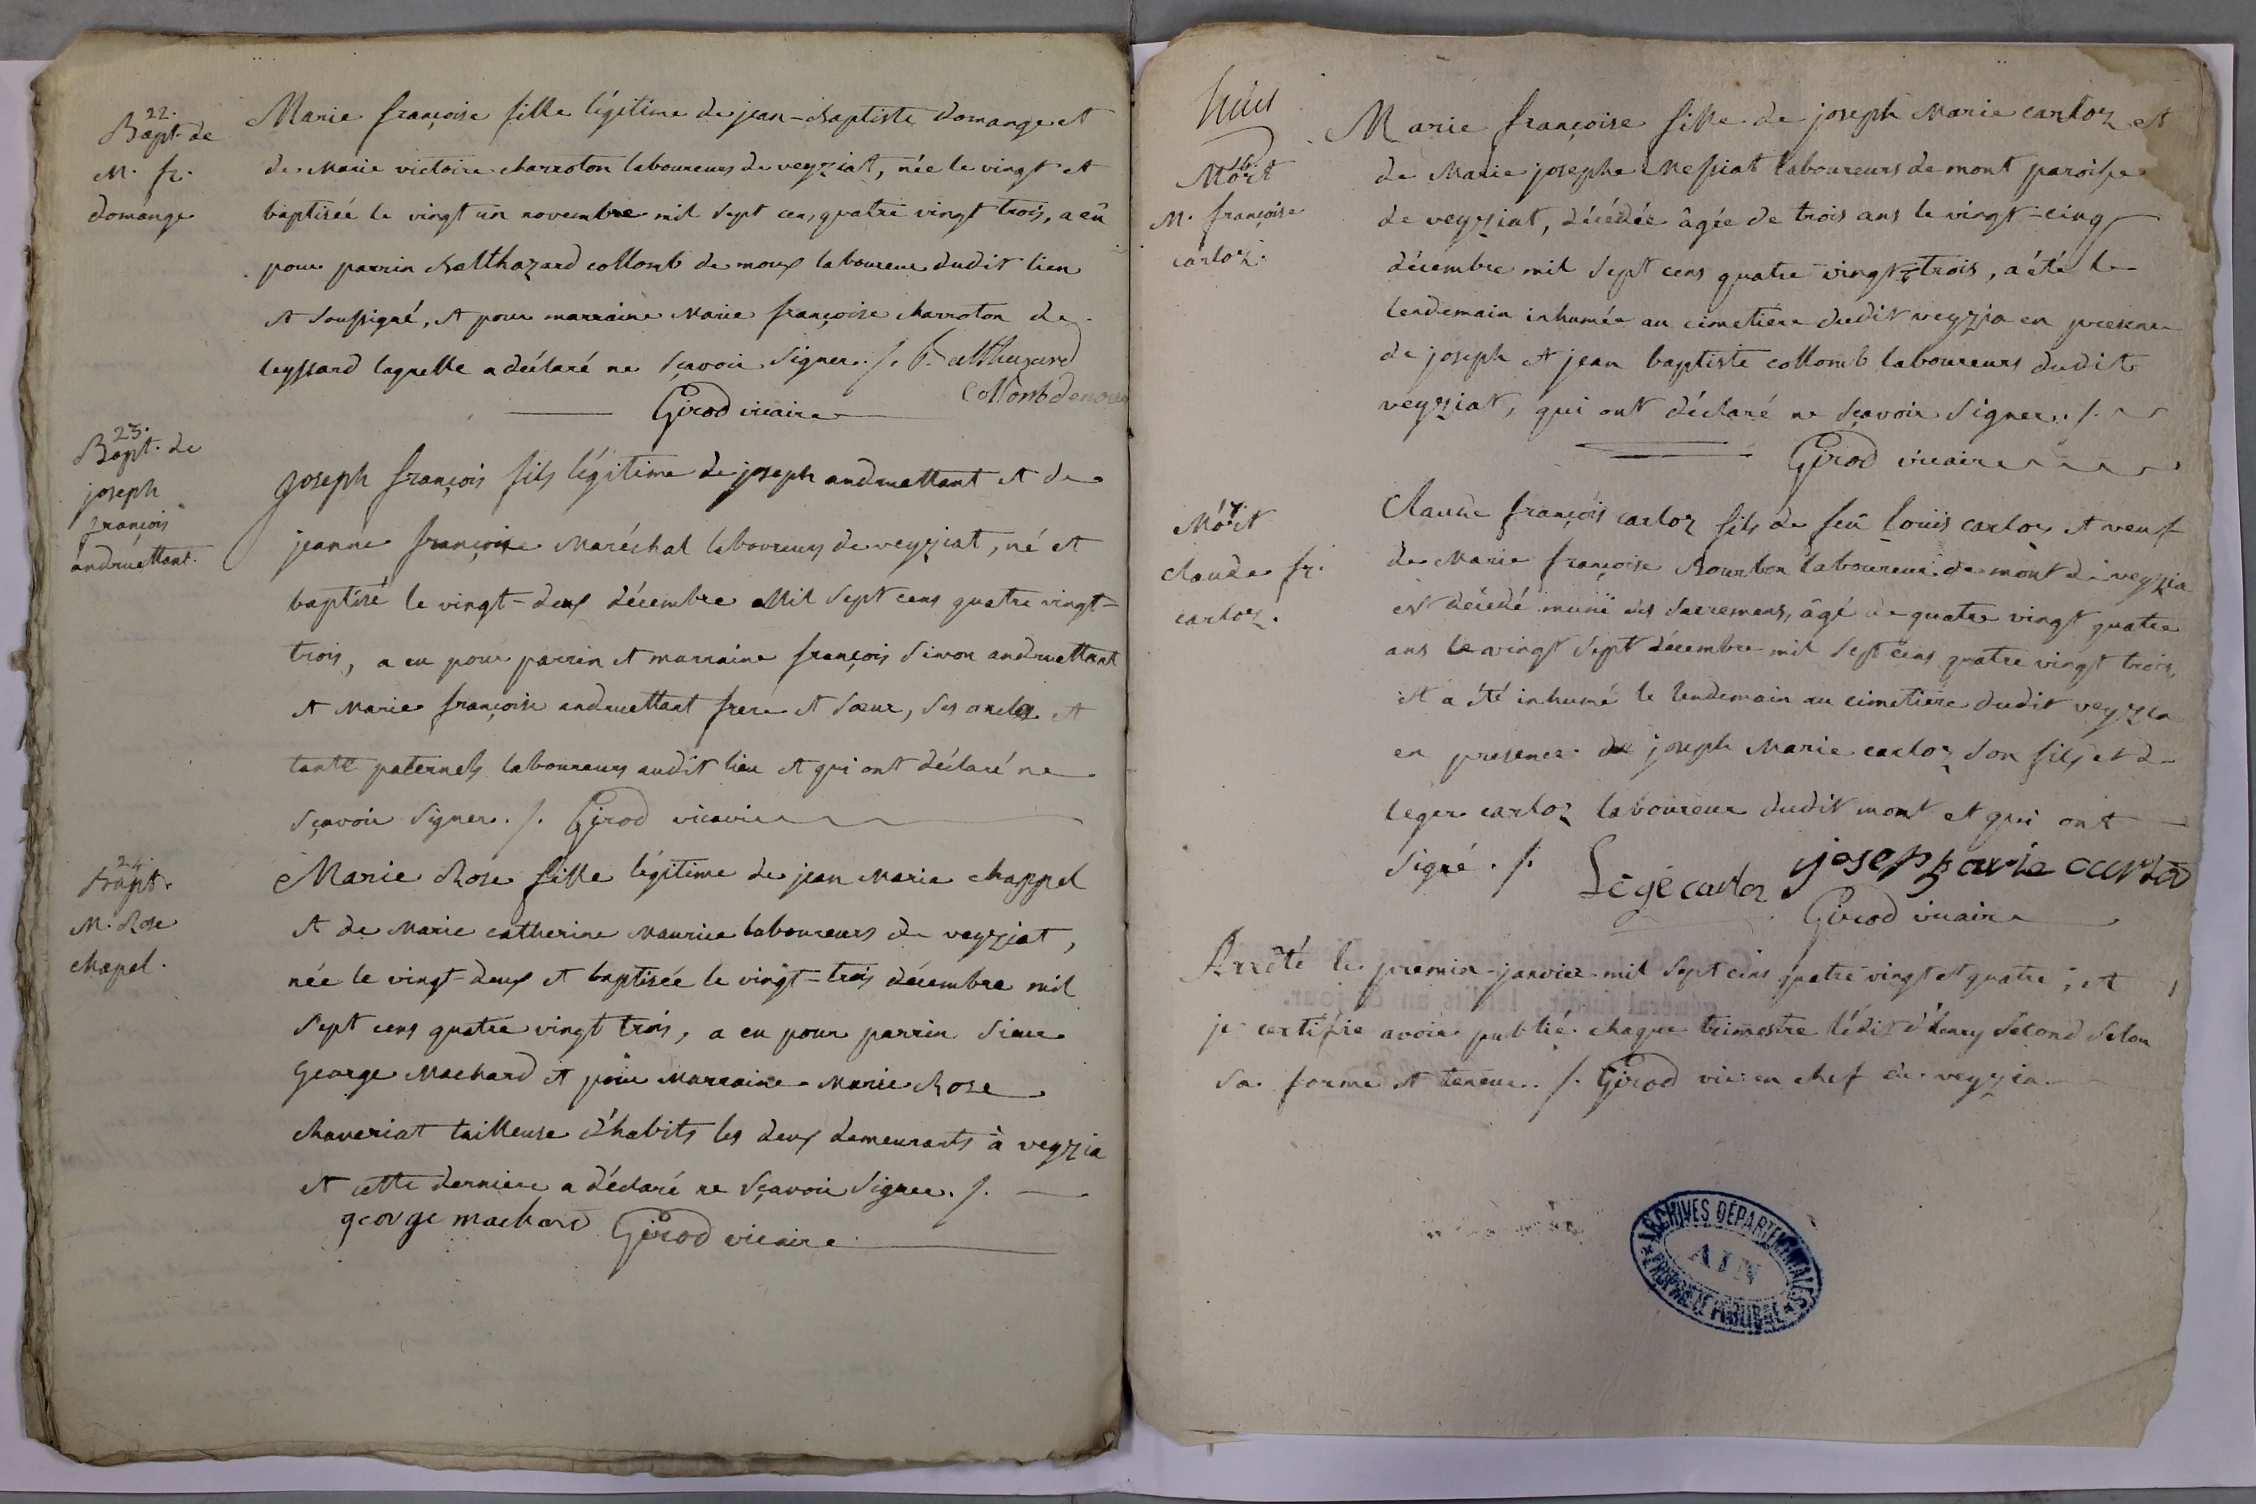 22.
Bapt. de
M. fr.
domange
Marie françoise fille légitime de jean-Baptiste domange et
de Marie victoire charroton laboureurs de veyziat, née le vingt et
baptisée le vingt un novembre mil sept cens quatre vingt trois, a eû
pour parrin Balthazard collomb de moux laboureur dudit lieu
et soussigné, et pour marraine Marie françoise charroton de
leyssard laquelle a déclaré ne sçavoir signer ./. B. althazard
Collomb de
Girod vicaire
23.
Bapt. de
joseph
françois
andruettant.
joseph françois fils légitime de joseph andruettant et de
jeanne françoise Maréchal laboureurs de veyziat, né et
baptisé le vingt-deux décembre Mil sept cens quatre vingt-
trois, a eu pour parrin et marraine françois simon andruettant
et Marie françoise andruettant frere et sœur, ses oncles et
tante paternels laboureurs audit lieu et qui ont déclaré ne
sçavoir signer ./. Girod vicaire
24.
Bapt.
M. Rose
chapel.
Marie Rose fille légitime de jean Marie chappel
et de Marie catherine Maurice laboureurs de veyziat,
née le vingt-deux et baptisée le vingt-trois décembre mil
sept cens quatre vingt trois, a eu pour parrin sieur
George Machard et pour Marraine Marie Rose
chaveriat tailleuse d'habits les deux demeurants à veyzia
et cette derniere a déclaré ne sçavoir signer ./.
george machard Girod vicaire
Mort
M. françoise
carloz.
Marie françoise fille de joseph Marie carloz et
de Marie josephe Messiat laboureurs de mont paroisse
de veyziat, décédée âgée de trois ans le vingt-cinq
décembre mil sept cens quatre vingt-trois, a été le
lendemain inhumée au cimetière dudit veyzia en presence
de joseph et jean baptiste collomb laboureurs dudit
veyziat, qui ont déclaré ne sçavoir signer ./.
Girod vicaire
7.
Mort
claude fr.
carloz.
Claude françois carloz fils de feû Louis carloz et veuf
de Marie françoise Bourbon laboureur de mont de veyzia
est décédé muni des sacremens, âgé de quatre vingt quatre
ans le vingt sept décembre mil sept cens quatre vingt trois,
et a été inhumé le lendemain au cimetière dudit veyzia
en presence de joseph Marie carloz son fils et de
leger carloz laboureur dudit mont et qui ont
signé ./. Légé carloz joseph marie carloz
Girod vicaire
Arrêté le premier janvier mil sept cens quatre vingt et quatre, et
je certifie avoir publié chaque trimestre l'édit d'henry second selon
sa forme et teneur ./. Girod vic: en chef de veyzia
ARCHIVES DÉPARTEMENTALES
AIN
PROPRIÉTÉ PUBLIQUE